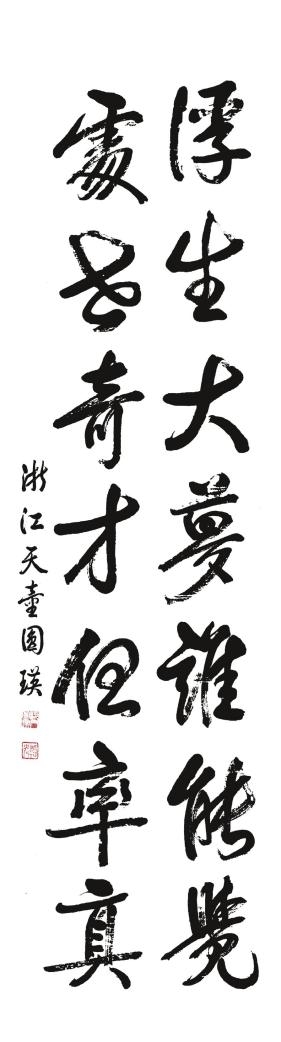 浮生大夢誰能覺
處世奇才但率真
浙江天童圓瑛